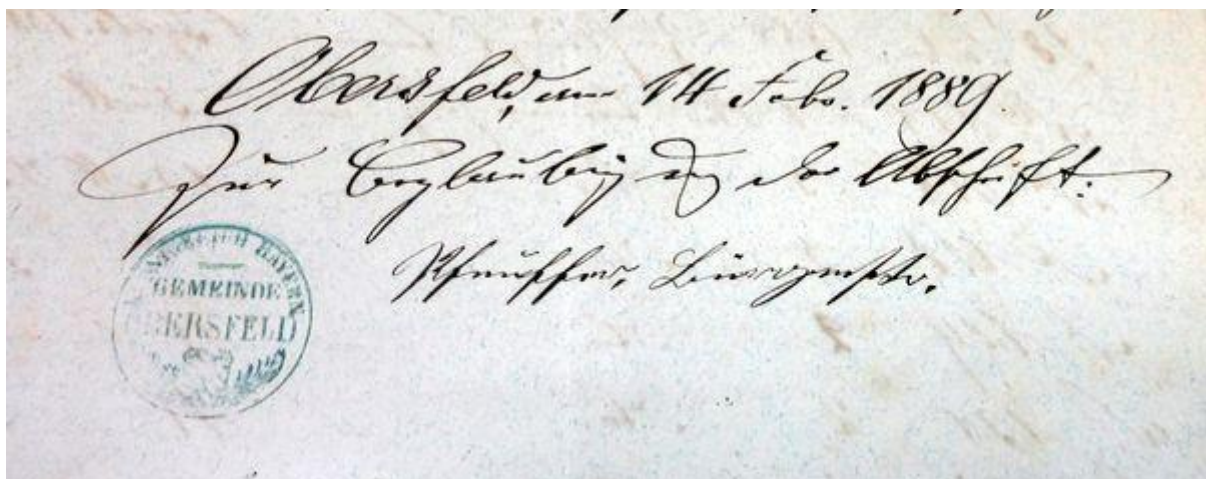 Obersfeld, am 14 Febr. 1889.
Zur Beglaubigung der Abschrift:
Pfeuffer, Bürgermstr.
KÖNIGREICH BAYERN
GEMEINDE
OBERSFELD